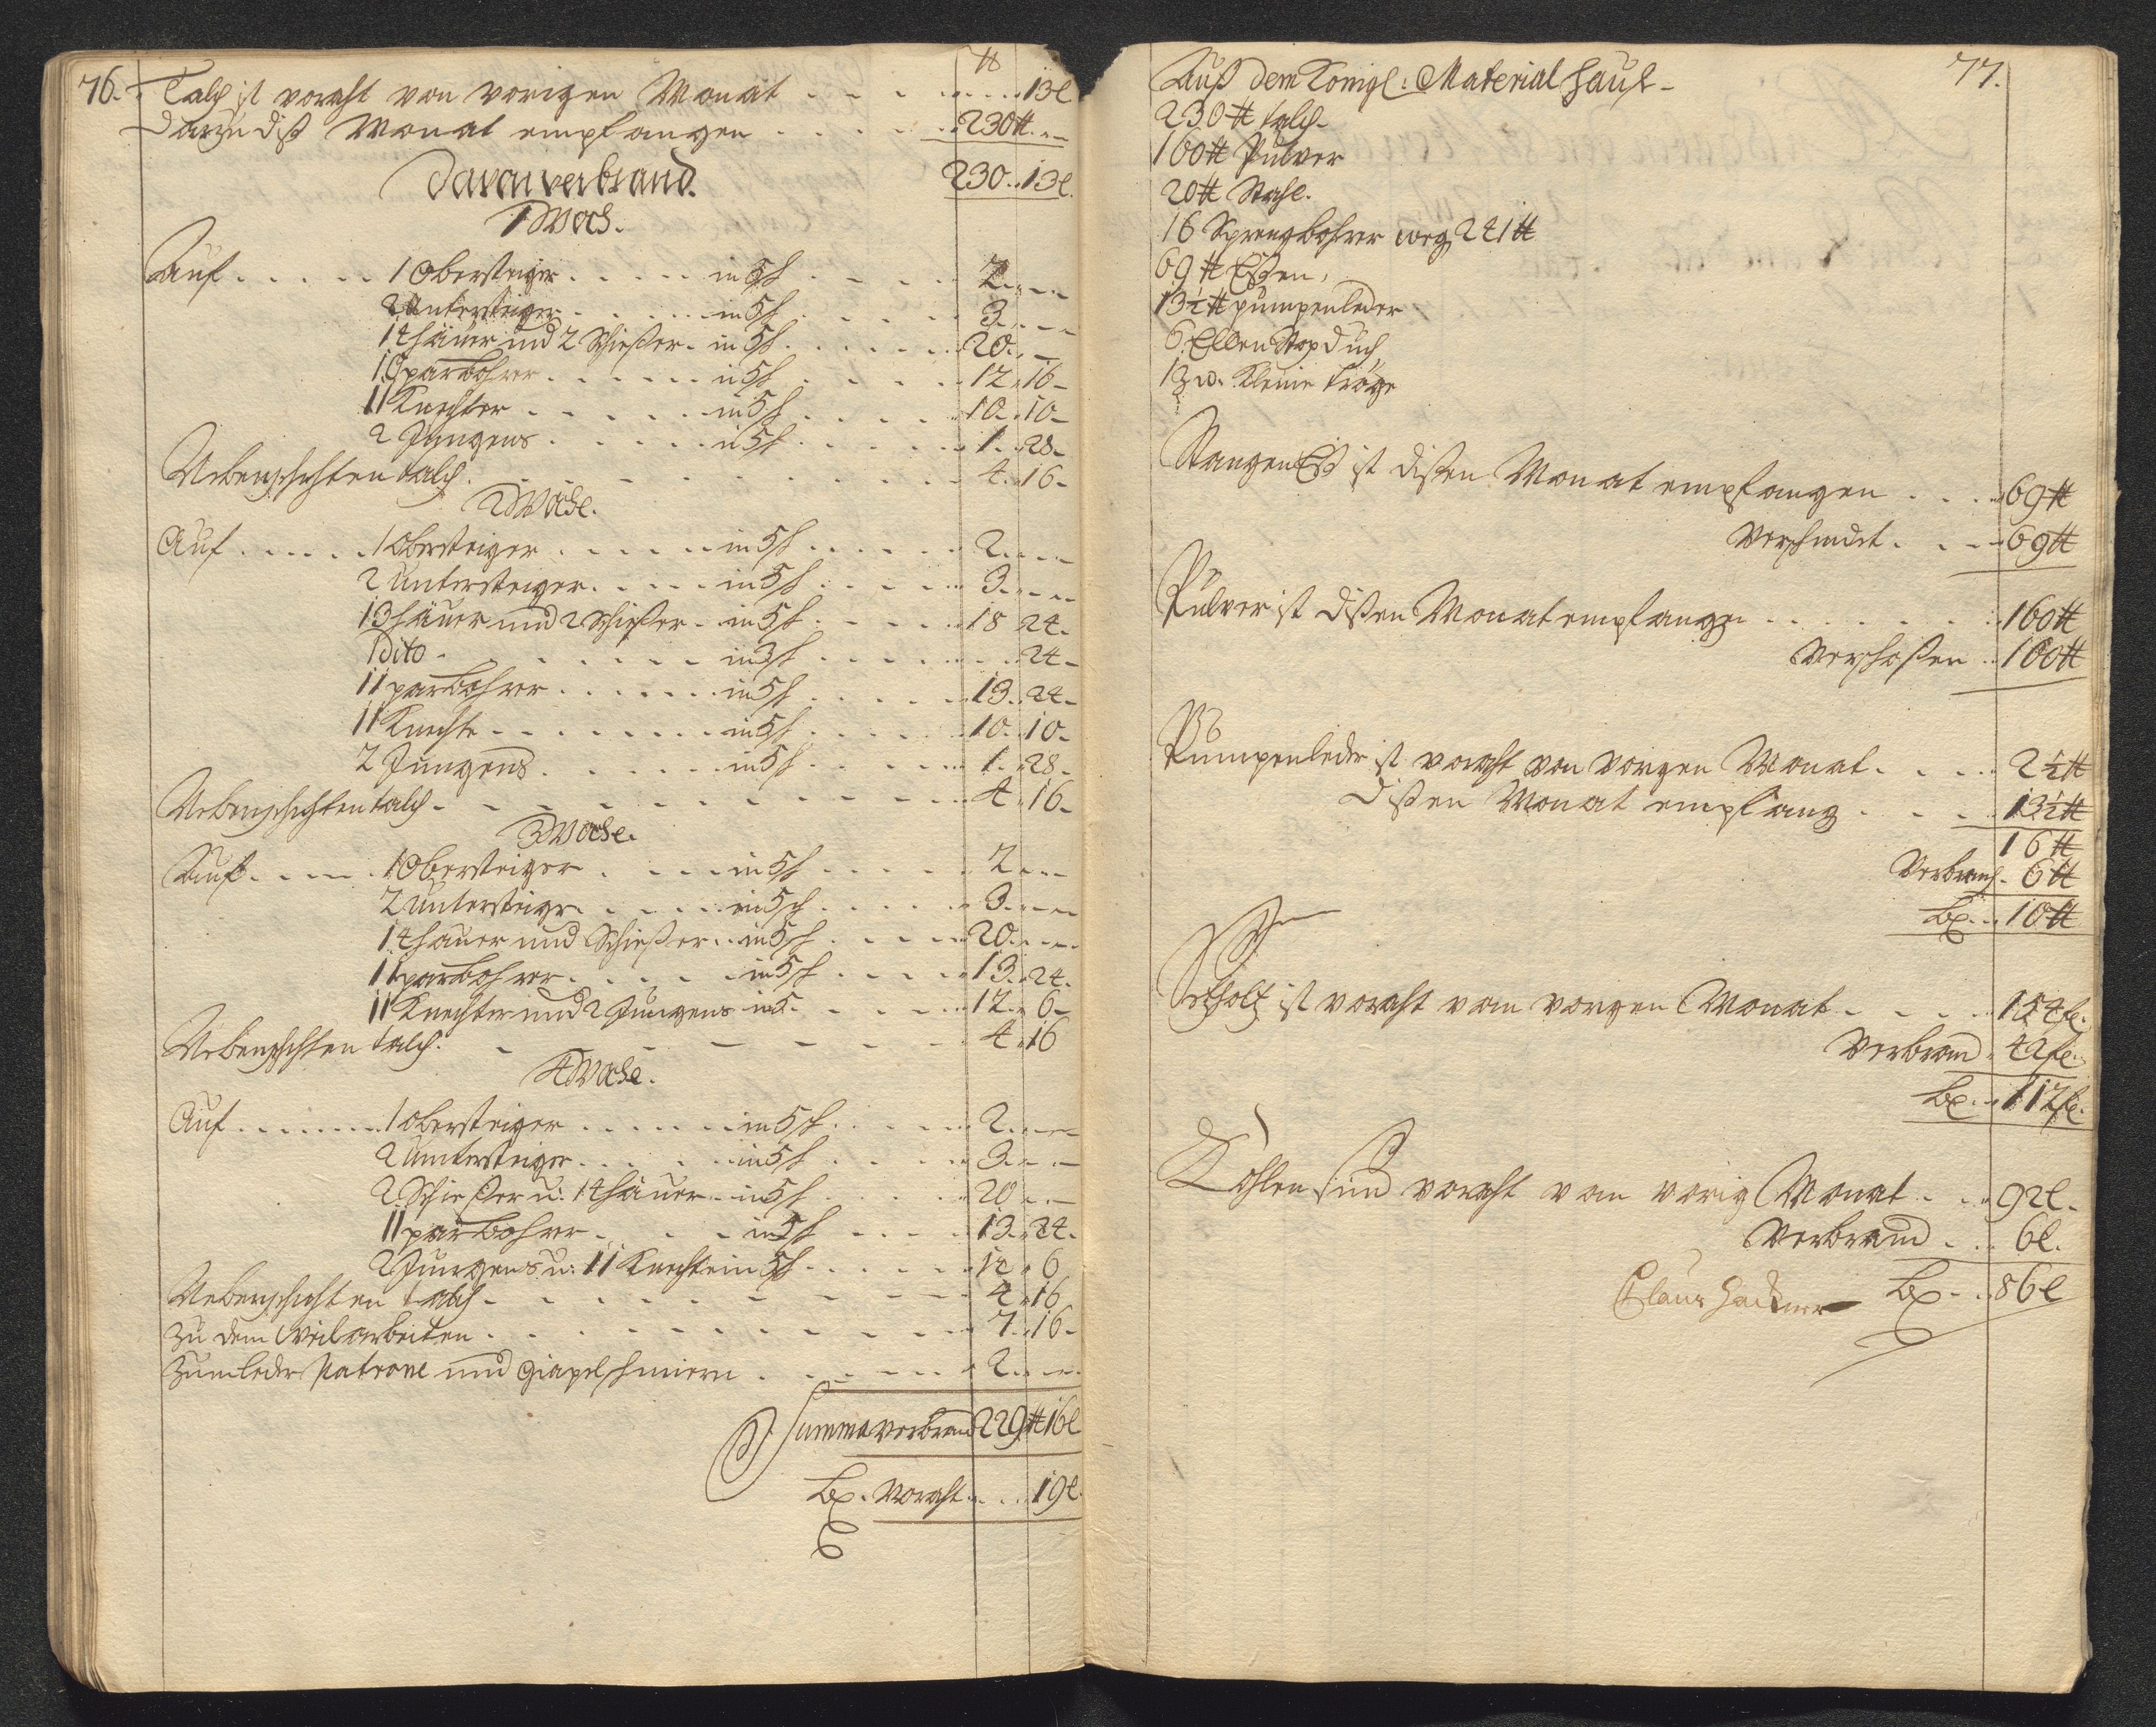 76.
℔
Talch ist voraht von vorigen Monat 13 l
Darzu diß Monat empfangen 230 ℔
Davon verbrand. 230 .. 13 l.
1 Woch.
Auf 1 Obersteiger in 5 sh 2
2 Untersteiger in 5 sh 3
14 häuer und 2 Schießer in 5 sh 20
10 parbohrer in 5 sh 12 16
11 Knechter in 5 sh 10 10
2 Jungens in 5 sh 1 28
Uebenschichten talch. 4 16
2 Woche.
Auf 1 Obersteiger in 5 sh 2
2 Untersteiger in 5 sh 3
13 häuer und 2 Schießer in 5 sh 18 24
1 dito in 3 sh 24
11 parbohrer in 5 sh 13 24
11 Knechte in 5 sh 10 10
2 Jungens in 5 sh 1 28
Uebenschichten talch 4 16
3 Woche.
Auf 1 Obersteiger in 5 sh 2
2 Untersteiger in 5 sch 3
14 hauer und Schießer in 5 sh 20
11 parbohrer in 5 sh 13 24
11 Knechter und 2 Jungens in 5 12 6
Uebenschichten talch. 4 16
4 Woche.
Auf 1 obersteiger in 5 sh 2
2 Untersteiger in 5 sh 3
2 Schießer u: 14 häuer in 5 sh 20
11 parbohrer in 5 sh 13 24
2 Jungens u: 11 Knecht in 5 sh 12 6
Uebenschichten talch 4 16
Zu dem arbeiten 7 16
Zum leder Patrone und Giapel schmiern 2
Summa verbrand 229 ℔ 16 l
bl. Voraht 19 l
77.
Auß dem Königl: Material hauß
230 ℔ talch
160 ℔ Pulver
20 ℔ Stahl.
16 Sprengbohrer weg 241 ℔
69 ℔ Eßen,
13½ ℔ pumpenleder
6 Ellen Stop Duch,
1 Kleine tröge
Stangen Eiß ist dißen Monat empfangen 69 ℔
Verschmidt 69 ℔
Pulver ist dißen Monat empfangen 160 ℔
Verschoßen 160 ℔
Pumpenleder ist voraht von vorigen Monat 2½ ℔
Dißen Monat empfang 13½ ℔
16 ℔
Verbrauch 6 ℔
bl. 10 ℔
Setzholtz ist voraht vom vorigen Monat 154 f.
Verbrand 42 f.
bl. 112 f.
Kohlen sind voraht vom vorig Monat 92 l.
Verbrand 6 l.
bl. 86 l
Claus